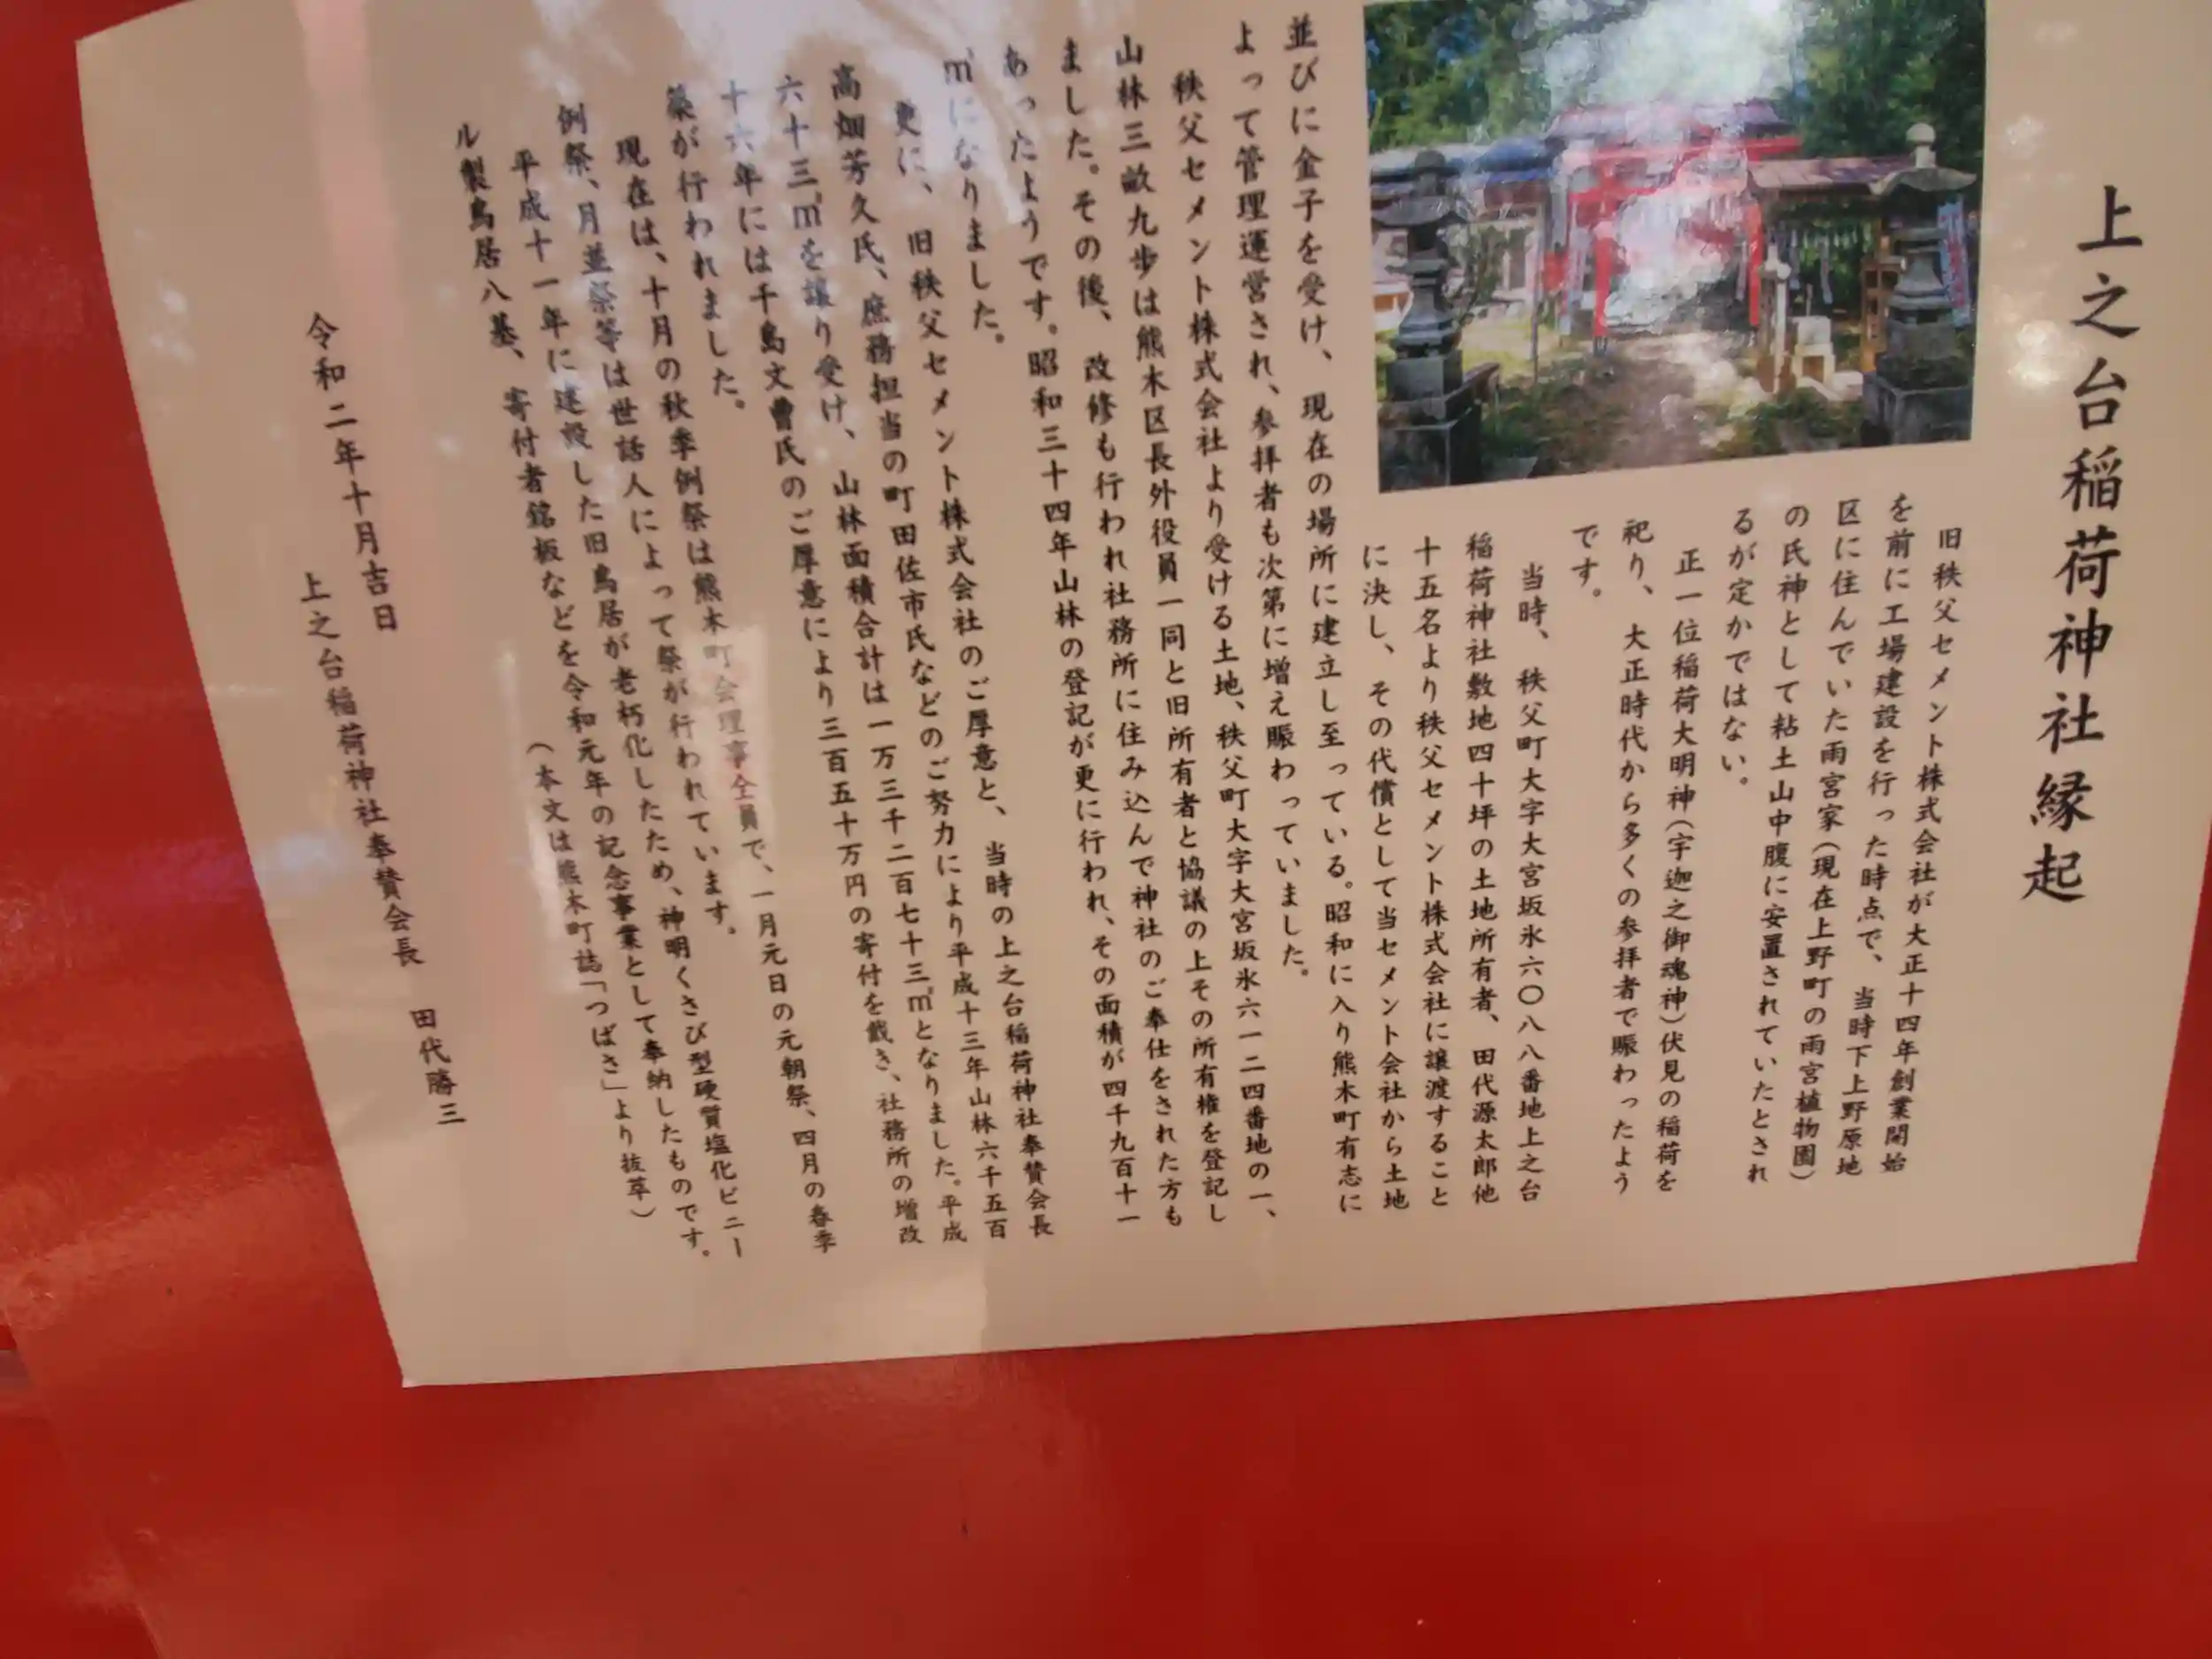 上之台稲荷神社縁起
旧秩父セメント株式会社が大正十四年創業開始
を前に工場建設を行った時点で、当時下上野原地
区に住んでいた雨宮家(現在上野町の雨宮植物園)
の氏神として粘土山中腹に安置されていたとされ
るが定かではない。
正一位稲荷大明神(宇迦之御魂神)伏見の稲荷を
祀り、大正時代から多くの参拝者で賑わったよう
です。
当時、秩父町大字大宮坂氷六〇八八番地上之台
稲荷神社敷地四十坪の土地所有者、田代源太郎他
十五名より秩父セメント株式会社に譲渡すること
に決し、その代償として当セメント会社から土地
並びに金子を受け、現在の場所に建立し至っている。昭和に入り熊木町有志に
よって管理運営され、参拝者も次第に増え賑わっていました。
秩父セメント株式会社より受ける土地、秩父町大字大宮坂氷六一二四番地の一、
山林三畝九歩は熊木区長外役員一同と旧所有者と協議の上その所有権を登記し
ました。その後、改修も行われ社務所に住み込んで神社のご奉仕をされた方も
あったようです。昭和三十四年山林の登記が更に行われ、その面積が四千九百十一
㎡になりました。
更に、旧秩父セメント株式会社のご厚意と、当時の上之台稲荷神社奉賛会長
高畑芳久氏、庶務担当の町田佐市氏などのご努力により平成十三年山林六千五百
六十三㎡を譲り受け、山林面積合計は一万三千二百七十三㎡となりました。平成
十六年には千島文曹氏のご厚意により三百五十万円の寄付を戴き、社務所の増改
築が行われました。
現在は、十月の秋季例祭は熊木町会理事全員で、一月元日の元朝祭、四月の春季
例祭、月並祭等は世話人によって祭が行われています。
平成十一年に建設した旧鳥居が老朽化したため、神明くさび型硬質塩化ビニー
ル製鳥居八基、寄付者銘板などを令和元年の記念事業として奉納したものです。
(本文は熊木町誌「つばさ」より抜萃)
令和二年十月吉日
上之台稲荷神社奉賛会長 田代勝三